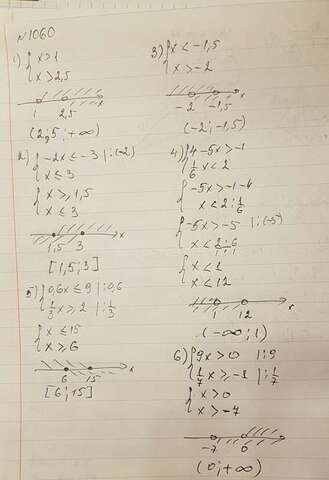 N1060
1) { x>1
x>2,5
1 2,5 x
(2,5; +∞)
2) { -2x ≤ -3 |:(-2)
x ≤ 3
{ x ≥ 1,5
x ≤ 3
1,5 3 x
[1,5; 3]
5) { 0,6x ≤ 9 |:0,6
1/3 x ≥ 2 |:1/3
{ x ≤ 15
x ≥ 6
6 15 x
[6; 15]
3) { x < -1,5
x > -2
-2 -1,5 x
(-2; -1,5)
4) { 4-5x > -1
1/6 x < 2
{ -5x > -1-4
x < 2:1/6
{ -5x > -5 |:(-5)
{ x < 1
x < 12
1 12 x
(-∞; 1)
6) { 9x > 0 |:9
1/7 x ≥ -1 |:1/7
{ x > 0
x > -7
-7 0
(0; +∞)